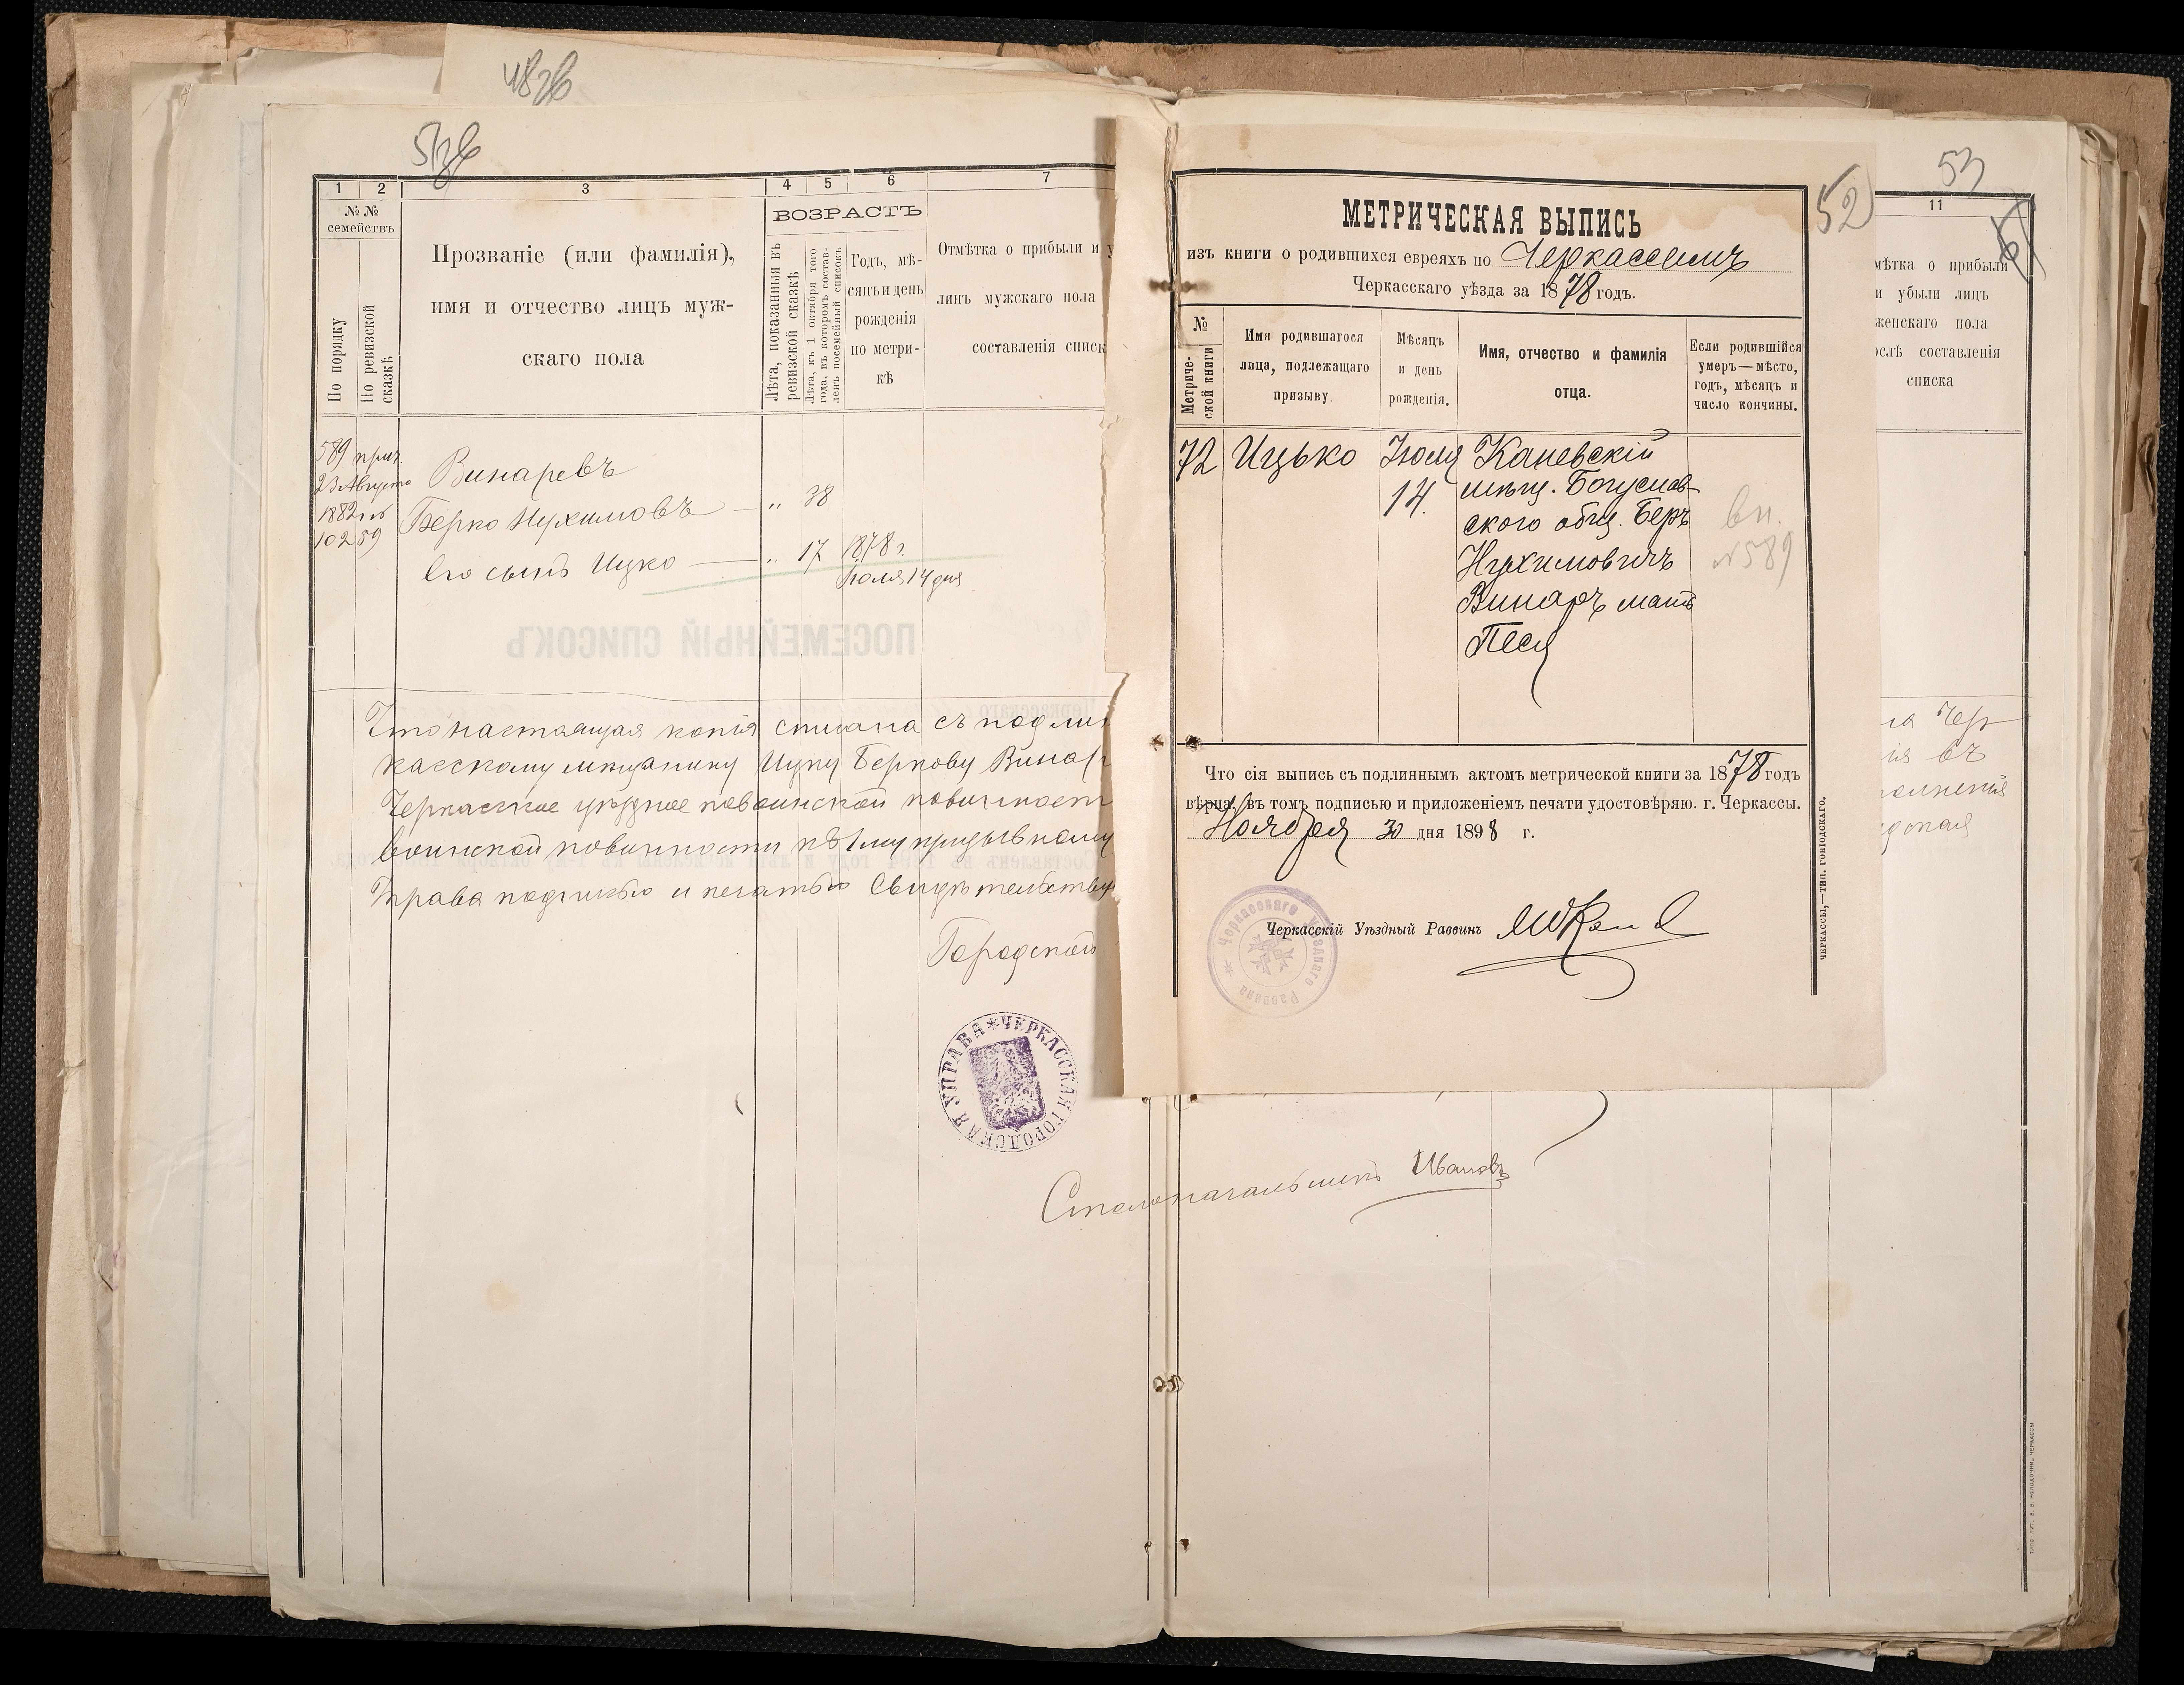 48об
51об
1 2 3 4 5 6 7
№ №
семействъ
По порядку
По ревизской
сказкѣ
Прозваніе (или фамилія),
имя и отчество лицъ муж-
скаго пола
ВОЗРАСТЪ
Лѣта, показанныя въ
ревизской сказкѣ
Лѣта, къ 1 октября того
года, въ которомъ состав-
ленъ посемейный списокъ
Годъ, мѣ-
сяцъ и день
рожденія
по метри-
кѣ
Отмѣтка о прибыли и у
лицъ мужскаго пола
составленія списк
589 прич.
23 Августа
1882 г. №
10259
Винаревъ
Берко Нухимовъ — „ 38
Его сынъ Ицко — „ 17 1878 г.
Іюля 14 дня
ПОСЕМЕЙНЫЙ СПИСОКЪ
Что настоящая копія списана съ подлин
касскому мѣщанину Ицку Беркову Винар
Черкасское уѣздное по воинской повинност
воинской повинности къ 1му призывному
Управа подписью и печатью Свидѣтельству
Городской
ЧЕРКАССКАЯ ГОРОДСКАЯ УПРАВА
Столоначальникъ Ивановъ
52
МЕТРИЧЕСКАЯ ВЫПИСЬ
изъ книги о родившихся евреяхъ по Черкассамъ
Черкасскаго уѣзда за 1878 годъ.
№
Метриче-
ской книги
Имя родившагося
лица, подлежащаго
призыву.
Мѣсяцъ
и день
рожденія.
Имя, отчество и фамилія
отца.
Если родившійся
умеръ—мѣсто,
годъ, мѣсяцъ и
число кончины.
72 Ицько Іюля Каневскій
14. мѣщ. Богуслав-
ского общ. Беръ
Нухимовичъ
Винаръ мать
Песя
вн.
№ 589
Что сія выпись съ подлиннымъ актомъ метрической книги за 1878 годъ
вѣрна, въ томъ подписью и приложеніемъ печати удостовѣряю. г. Черкассы.
Ноября 30 дня 1898 г.
Черкасскій Уѣздный Раввинъ
Черкасскаго Уѣзднаго Раввина
ЧЕРКАССЫ,—ТИП. ГОРОДСКАГО.
53
11
мѣтка о прибыли
и убыли лицъ
женскаго пола
ослѣ составленія
списка
на Чер
ія въ
олненія
одская